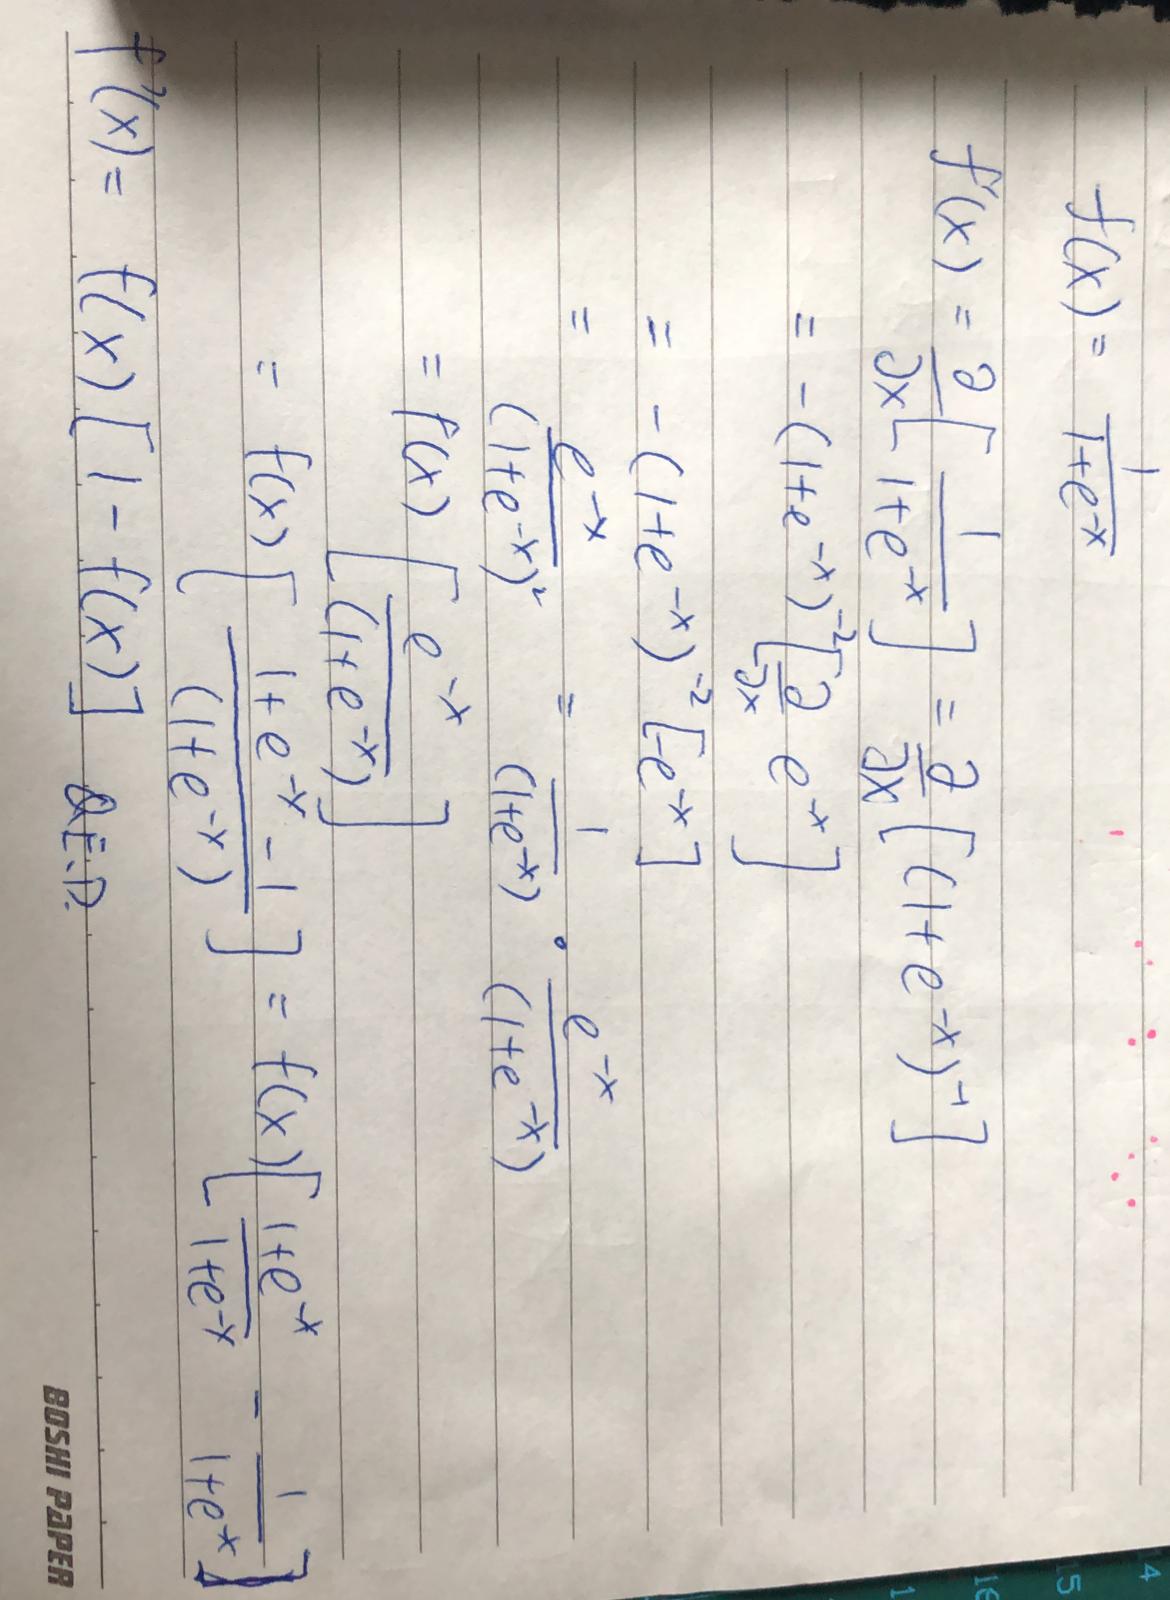 f(x) = 1/(1+e^-x)
f'(x) = ∂/∂x [1/(1+e^-x)] = ∂/∂x [(1+e^-x)^-1]
= -(1+e^-x)^-2 [∂/∂x e^-x]
= -(1+e^-x)^-2 [-e^-x]
= e^-x/(1+e^-x)^2 = 1/(1+e^-x) · e^-x/(1+e^-x)
= f(x) [e^-x/(1+e^-x)]
= f(x) [(1+e^-x - 1)/(1+e^-x)] = f(x) [(1+e^-x)/(1+e^-x) - 1/(1+e^-x)]
f'(x) = f(x) [1 - f(x)] Q.E.D.
BOSHI PAPER
14
15
16
1